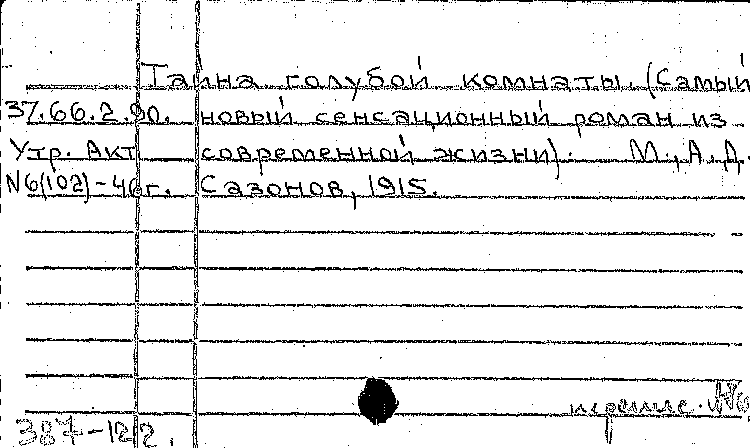 Тайна голубой комнаты. (Самый
37.66.2.90. новый сенсационный роман из
Утр. Акт современной жизни). М., А.Д.
N6(102)-46г. Сазонов, 1915.
387-1212.